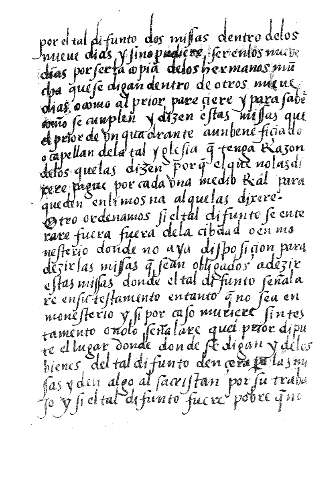 por el tal difunto dos missas dentro delos
nueve dias y sino pudiere ser enlos nueve
dias por ser la copia delos hermanos mu
cha que se digan dentro de otros nueve
dias, o como al prior pareçiere y para saber
como se cumplen y dizen estas missas que
el prior de un quadrante a un beneficiado
o capellan dela tal yglesia q tenga Razon
delos que las dizen porq el que no las di
xere pague por cada una medio Real para
que den en limosna al que las dixere-
Otro ordenamos si el tal difunto se ente
rare fuera fuera dela cibdad o en mo
nesterio donde no aya disposiçion para
dezir las missas q sean obligados a dezir
estas missas donde el tal difunto señala
re en su testamento entanto q no sea en
monesterio y si por caso muriere sin tes
tamento o no lo señalare quel prior dipu
te el lugar donde donde se digan y delos
bienes del tal difunto den çera pa las mi
sas y den algo al sacristan por su traba
jo y si el tal difunto fuere pobre q no